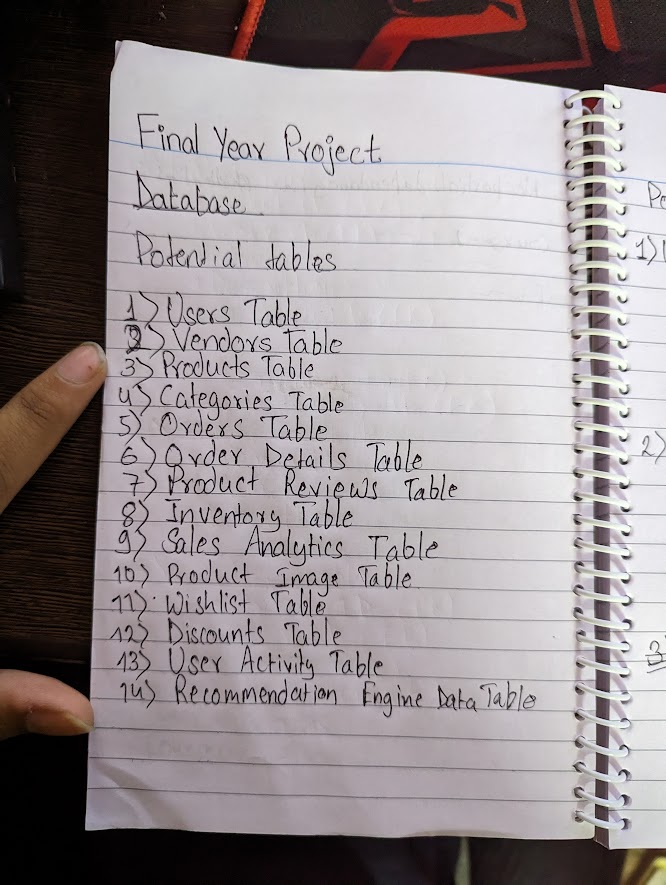 Final Year Project
Database
Potential tables
1) Users Table
2) Vendors Table
3) Products Table
4) Categories Table
5) Orders Table
6) Order Details Table
7) Product Reviews Table
8) Inventory Table
9) Sales Analytics Table
10) Product Image Table
11) Wishlist Table
12) Discounts Table
13) User Activity Table
14) Recommendation Engine Data Table
1)
2)
3